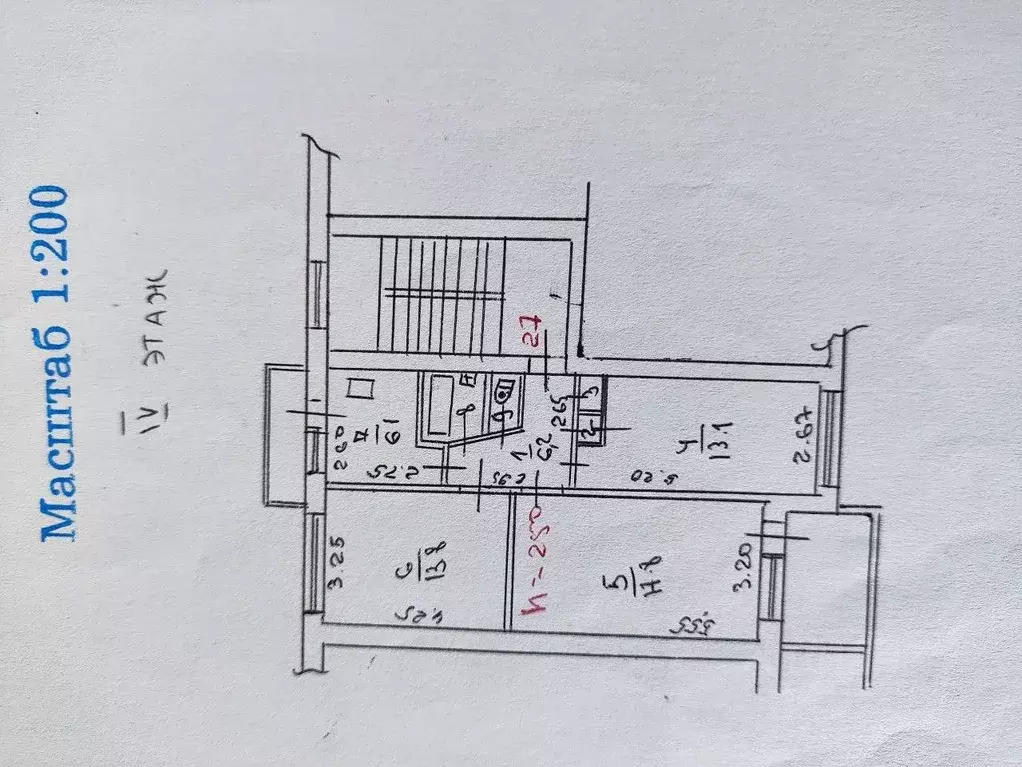 Масштаб 1:200
IV ЭТАЖ
27
2.60
7
6.1
2.75
8
9
1
6,2
2.65
2.95
3
2
4
13.1
5.20
2.67
3.25
6
13.8
4.25
h=250
5
17.8
5.55
3.20